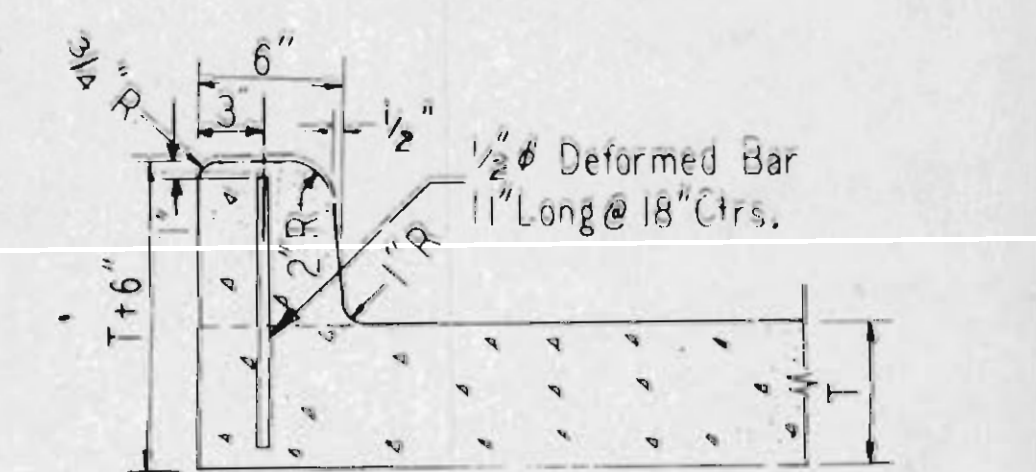 6"
3/4" R
3"
1/2"
1/2" ϕ Deformed Bar
11" Long @ 18" Ctrs.
1"
2" R
1" R
T + 6"
T